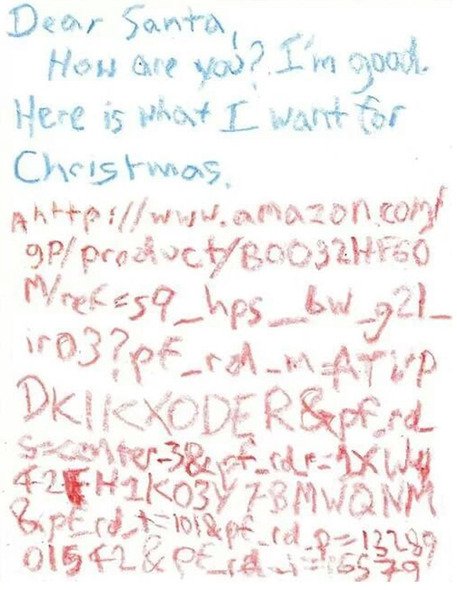 Dear Santa,
How are you? I'm good.
Here is what I want for
Christmas.
A http://www.amazon.com/
gp/product/B0032HF60
M/ref=s9_hps_bw_g21_
ir03?pf_rd_m=ATVP
DKIKX0DER&pf_rd_
s=center-3&pf_rd_r=1XW4
42FH1K03Y78MWQNM
&pf_rd_t=101&pf_rd_p=13289
01542&pf_rd_i=16579